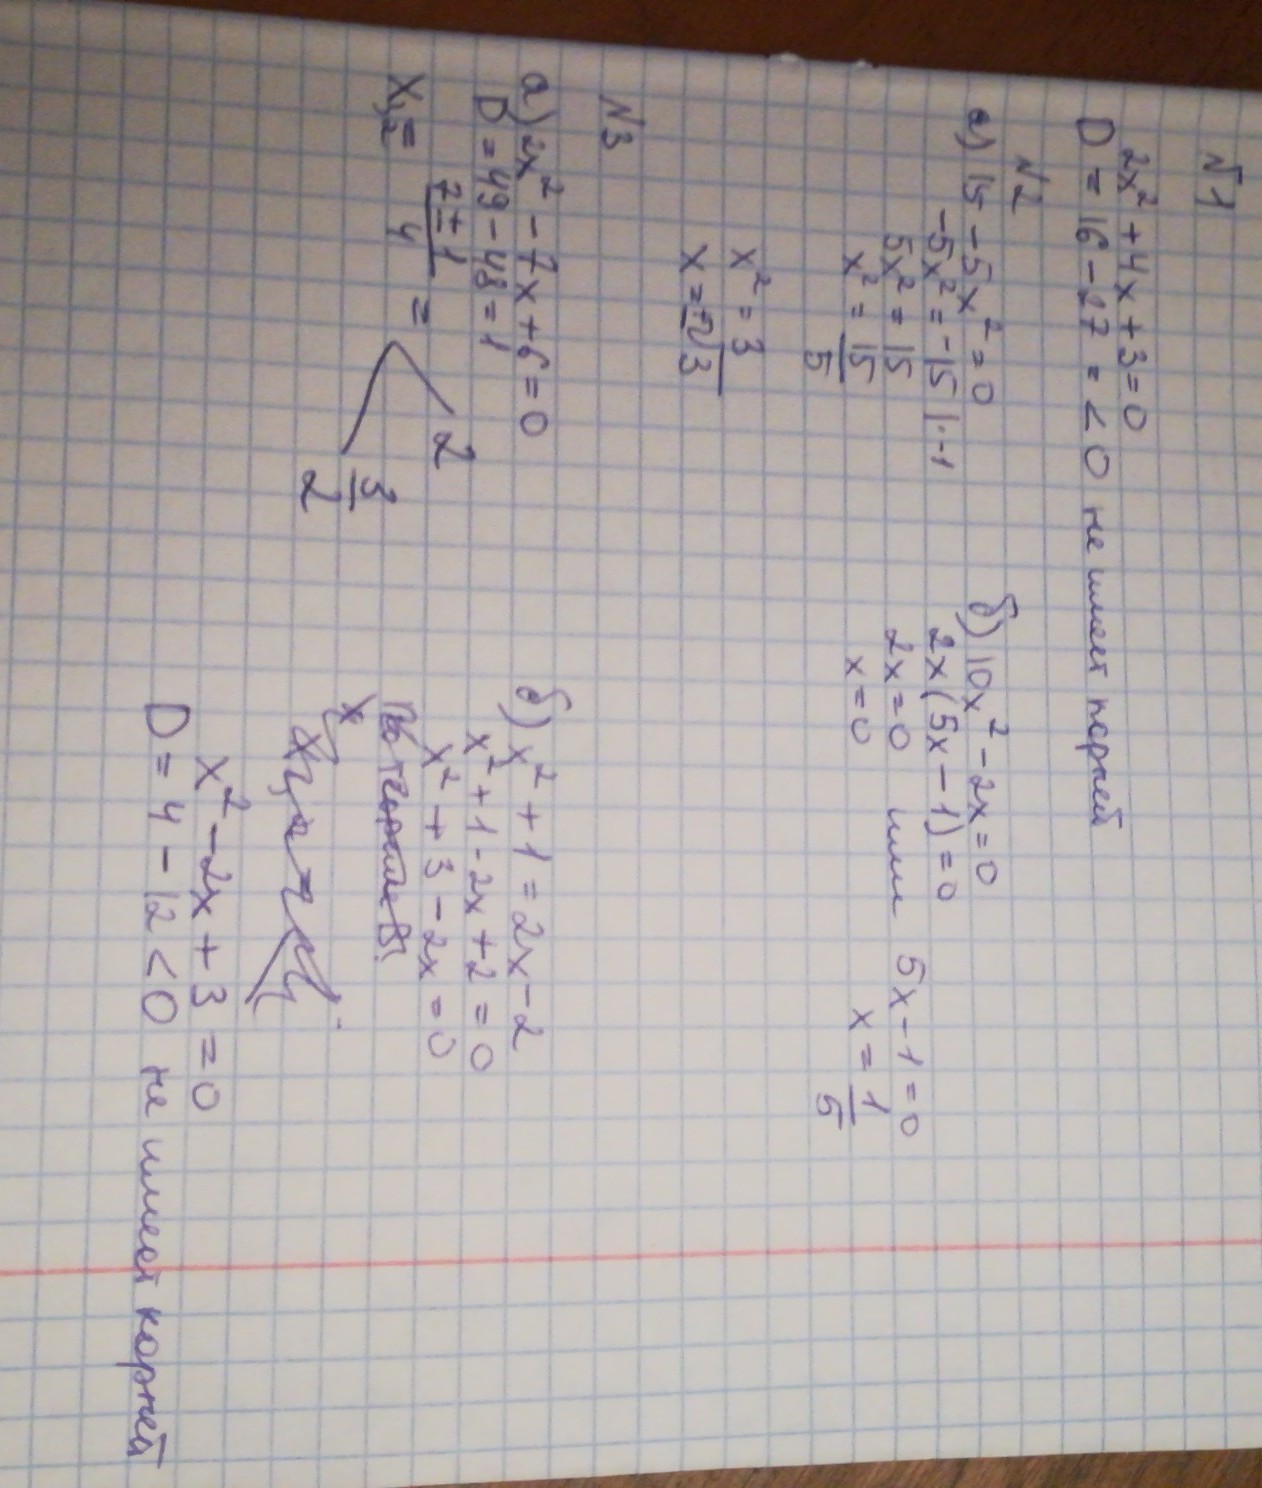 №1
2x² + 4x + 3 = 0
D = 16 - 27 = < 0 не имеет корней
№2
а) 15 - 5x² = 0
-5x² = -15 |·-1
5x² = 15
x² = 15/5
x² = 3
x = ±√3
б) 10x² - 2x = 0
2x(5x - 1) = 0
2x = 0 или 5x - 1 = 0
x = 0 x = 1/5
№3
а) 2x² - 7x + 6 = 0
D = 49 - 48 = 1
x₁,₂ = 7 ± 1/4 = 2
3/2
б) x² + 1 = 2x - 2
x² + 1 - 2x + 2 = 0
x² + 3 - 2x = 0
x² - 2x + 3 = 0
D = 4 - 12 < 0 не имеет корней